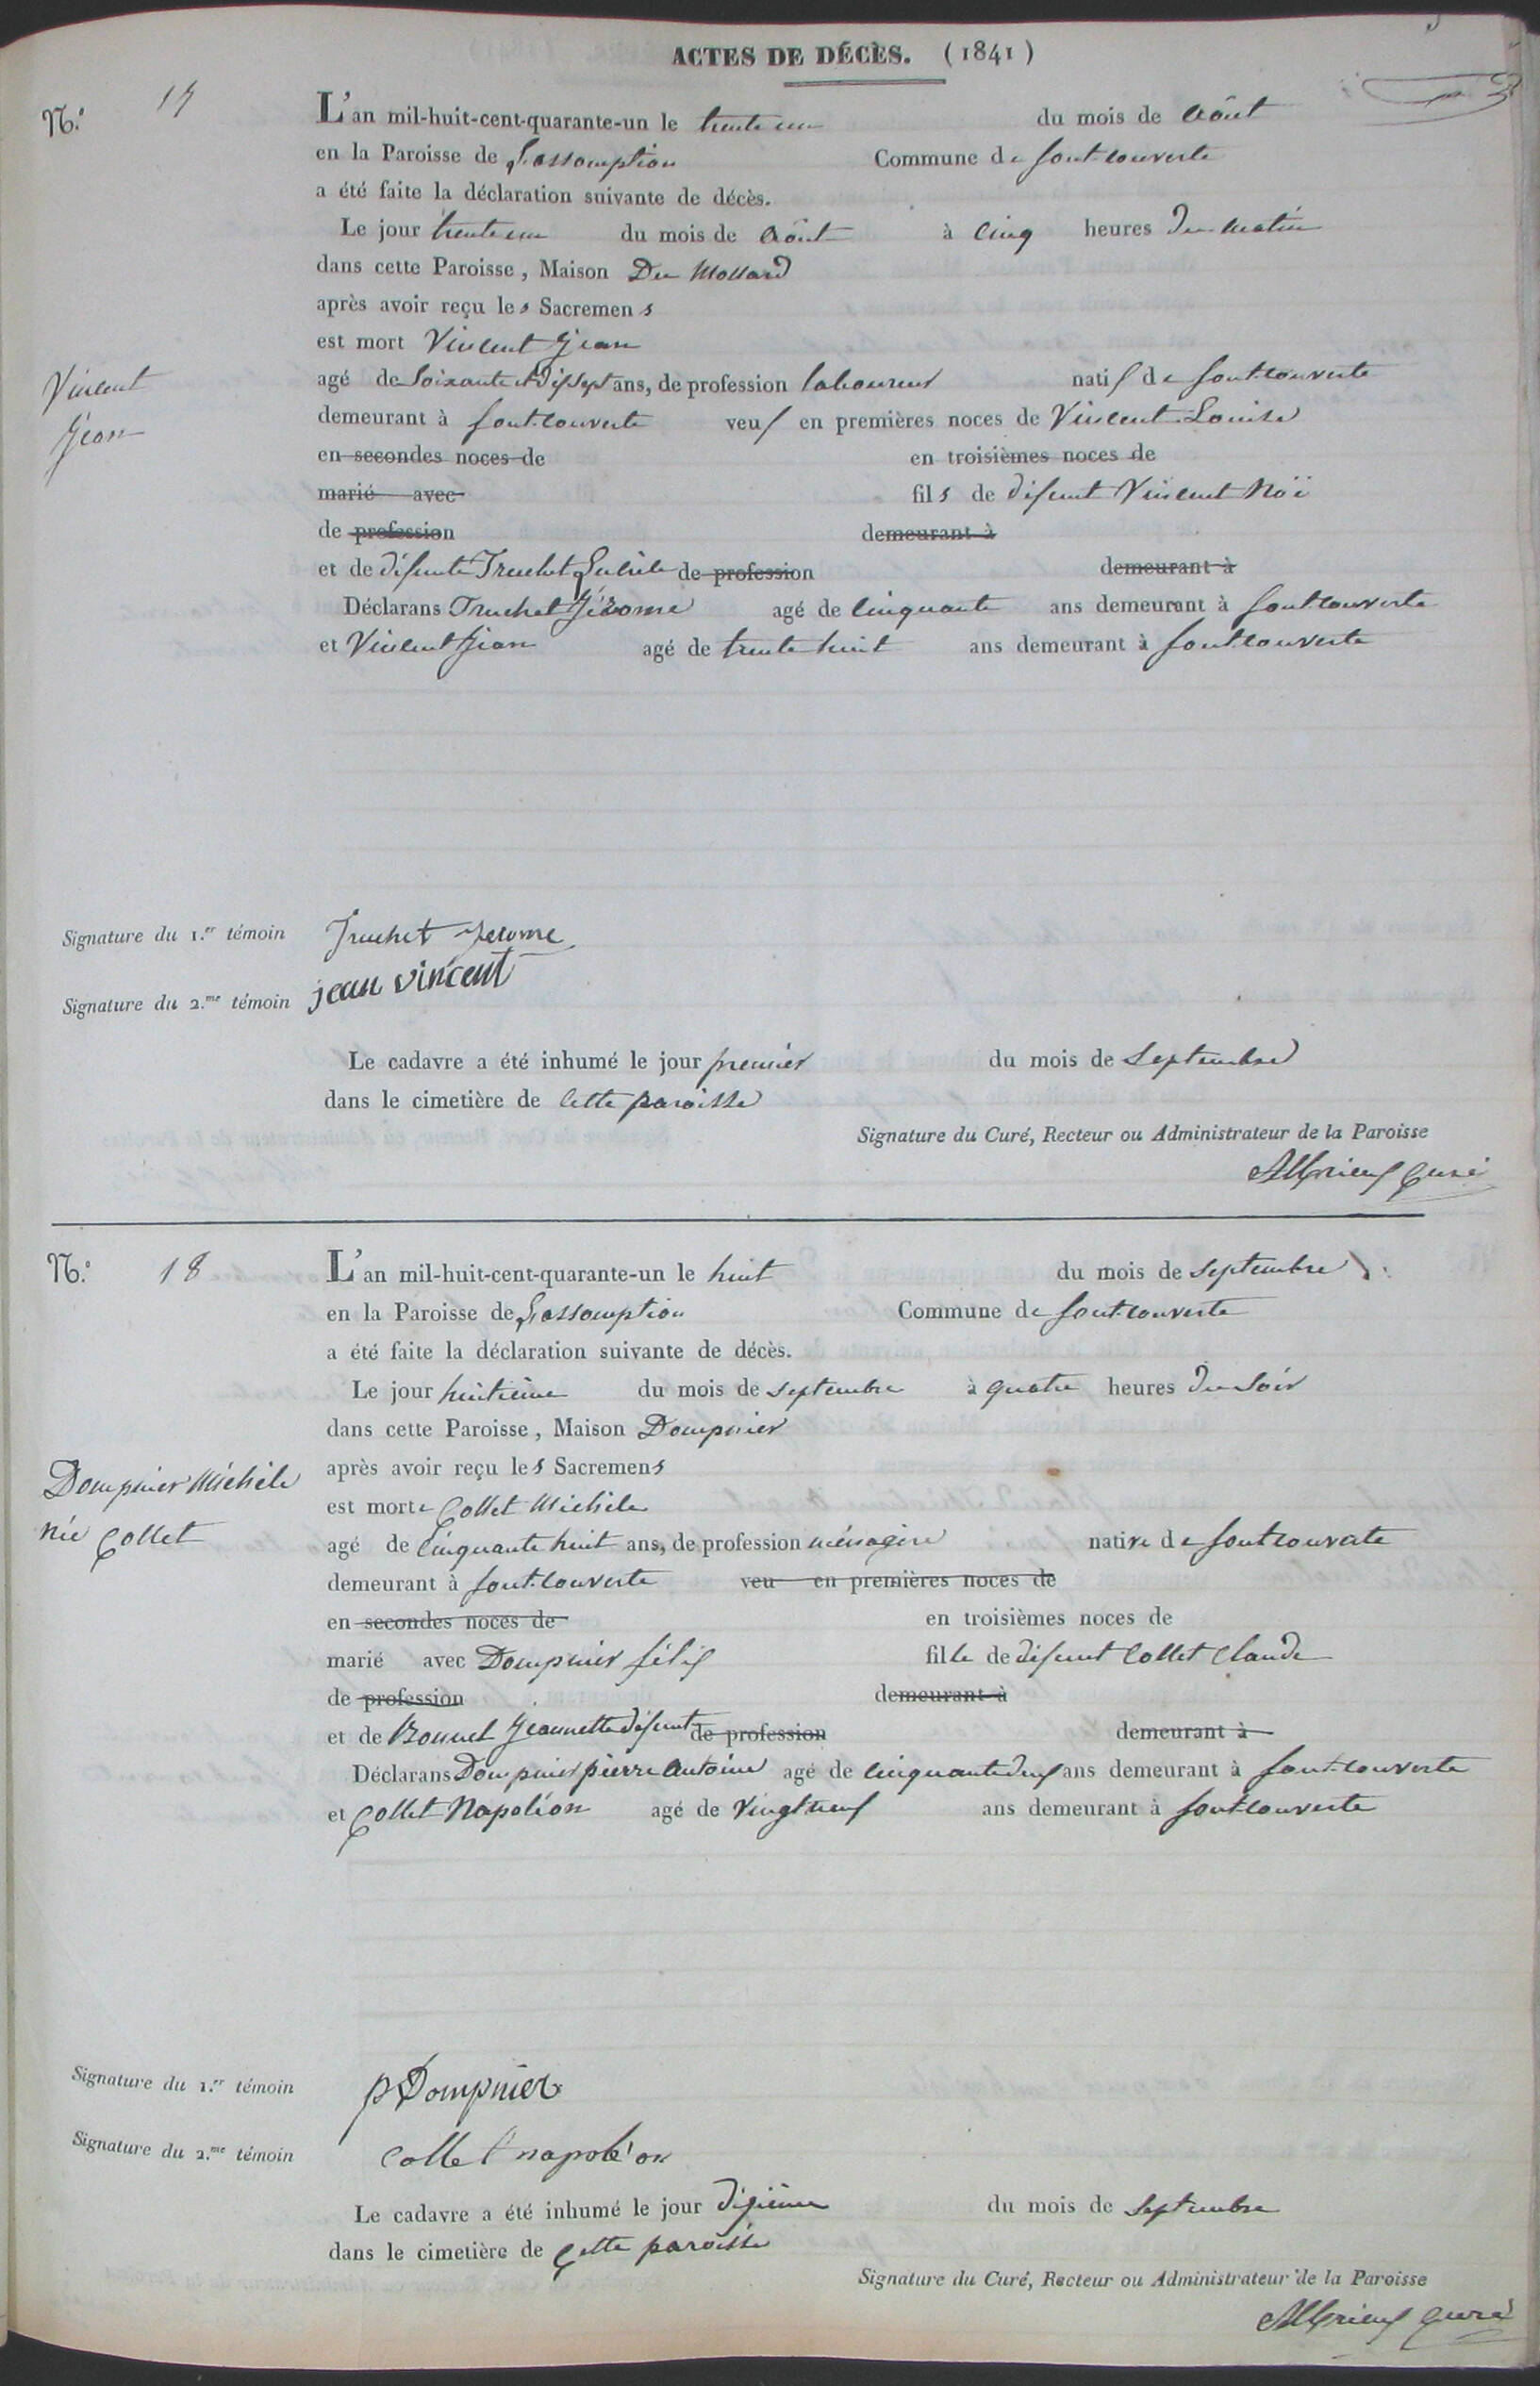 ACTES DE DÉCÈS. (1841)
N.º 17
L'an mil-huit-cent-quarante-un le trente un du mois de Août
en la Paroisse de L'assomption Commune de fontcouverte
a été faite la déclaration suivante de décès.
Le jour trente un du mois de Août à cinq heures Du matin
dans cette Paroisse, Maison Du Mollard
après avoir reçu les Sacremens
est mort Vincent Jean
Vincent
Jean
agé de Soixante et Dix sept ans, de profession laboureur natif de fontcouverte
demeurant à fontcouverte veuf en premières noces de Vincent Louise
en secondes noces de en troisièmes noces de
marié avec fils de défunt Vincent Noë
de profession demeurant à
et de défunte Truchet de profession demeurant à
Déclarans Truchet Jérome agé de cinquante ans demeurant à fontcouverte
et Vincent Jean agé de trente huit ans demeurant à fontcouverte
Signature du 1.er témoin Truchet Jerome
Signature du 2.me témoin jean vincent
Le cadavre a été inhumé le jour premier du mois de Septembre
dans le cimetière de cette paroisse
Signature du Curé, Recteur ou Administrateur de la Paroisse
Curé
N.º 18
L'an mil-huit-cent-quarante-un le huit du mois de septembre
en la Paroisse de L'assomption Commune de fontcouverte
a été faite la déclaration suivante de décès.
Le jour huitième du mois de septembre à quatre heures Du Soir
dans cette Paroisse, Maison Dompnier
après avoir reçu les Sacremens
Dompnier Michele
née Collet
est morte Collet Michele
agé de Cinquante huit ans, de profession ménagère native de fontcouverte
demeurant à fontcouverte veu en premières noces de
en secondes noces de en troisièmes noces de
marié avec Dompnier félix fille de défunt Collet Claude
de profession demeurant à
et de Bonnel Jeannette défunt de profession demeurant à
Déclarans Dompnier pierre Antoine agé de cinquante deux ans demeurant à fontcouverte
et Collet Napoléon agé de Vingt neuf ans demeurant à fontcouverte
Signature du 1.er témoin p Dompnier
Signature du 2.me témoin Collet napoléon
Le cadavre a été inhumé le jour Dixième du mois de Septembre
dans le cimetière de Cette paroisse
Signature du Curé, Recteur ou Administrateur de la Paroisse
Curé